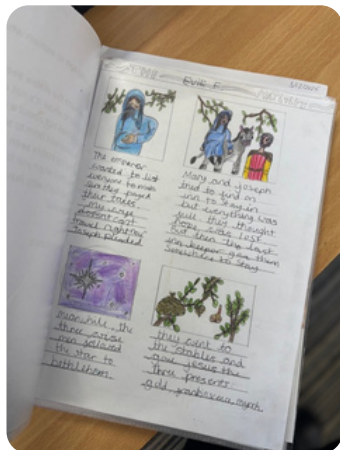 The emperor
wanted to list
everyone to make
sure they payed
their taxes.
my wife
doesn't
travel right now
Joseph pleaded
Mary and Joseph
tried to find an
inn to stay in
but everything was
full. they thought
hope was lost
But then the last
inn keeper gave them
somewhere to stay
meanwhile, the
three wise
men followed
the star to
bethlehem
they went to
the stables and
gave jesus the
three presents
gold, frankincense, myrrh